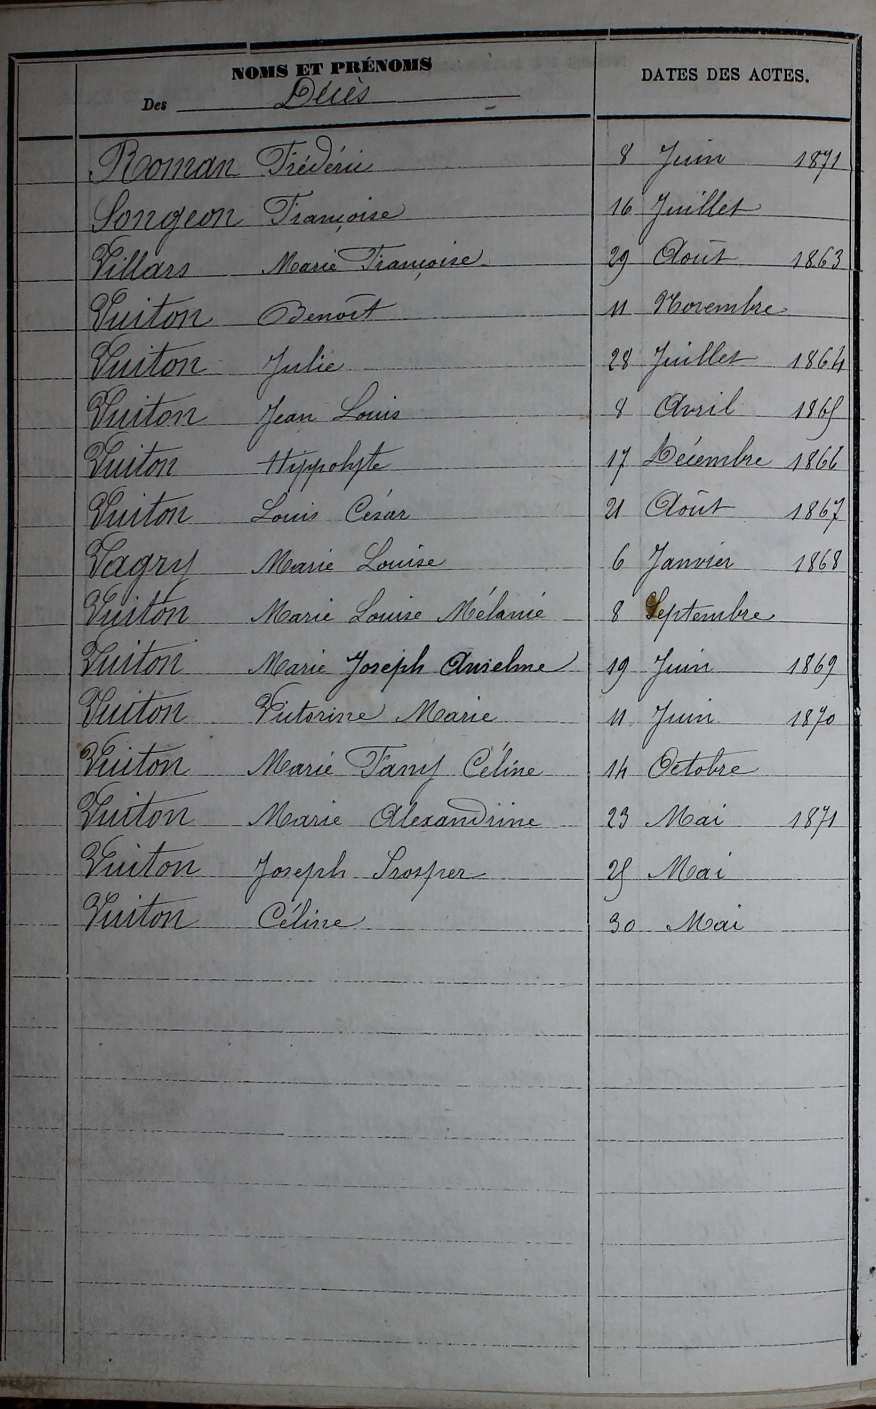 NOMS ET PRÉNOMS
DATES DES ACTES.
Des Décès
Roman Frédéric 8 Juin 1871
Songeon Françoise 16 Juillet
Villars Marie Françoise 29 Août 1863
Vuiton Benoît 11 Novembre
Vuiton Julie 28 Juillet 1864
Vuiton Jean Louis 8 Avril 1865
Vuiton Hyppolyte 17 Décembre 1866
Vuiton Louis César 21 Août 1867
Vagry Marie Louise 6 Janvier 1868
Vuiton Marie Louise Mélanie 8 Septembre
Vuiton Marie Joseph Anselme 19 Juin 1869
Vuiton Victorine Marie 11 Juin 1870
Vuiton Marie Fany Céline 14 Octobre
Vuiton Marie Alexandrine 23 Mai 1871
Vuiton Joseph Prosper 25 Mai
Vuiton Céline 30 Mai